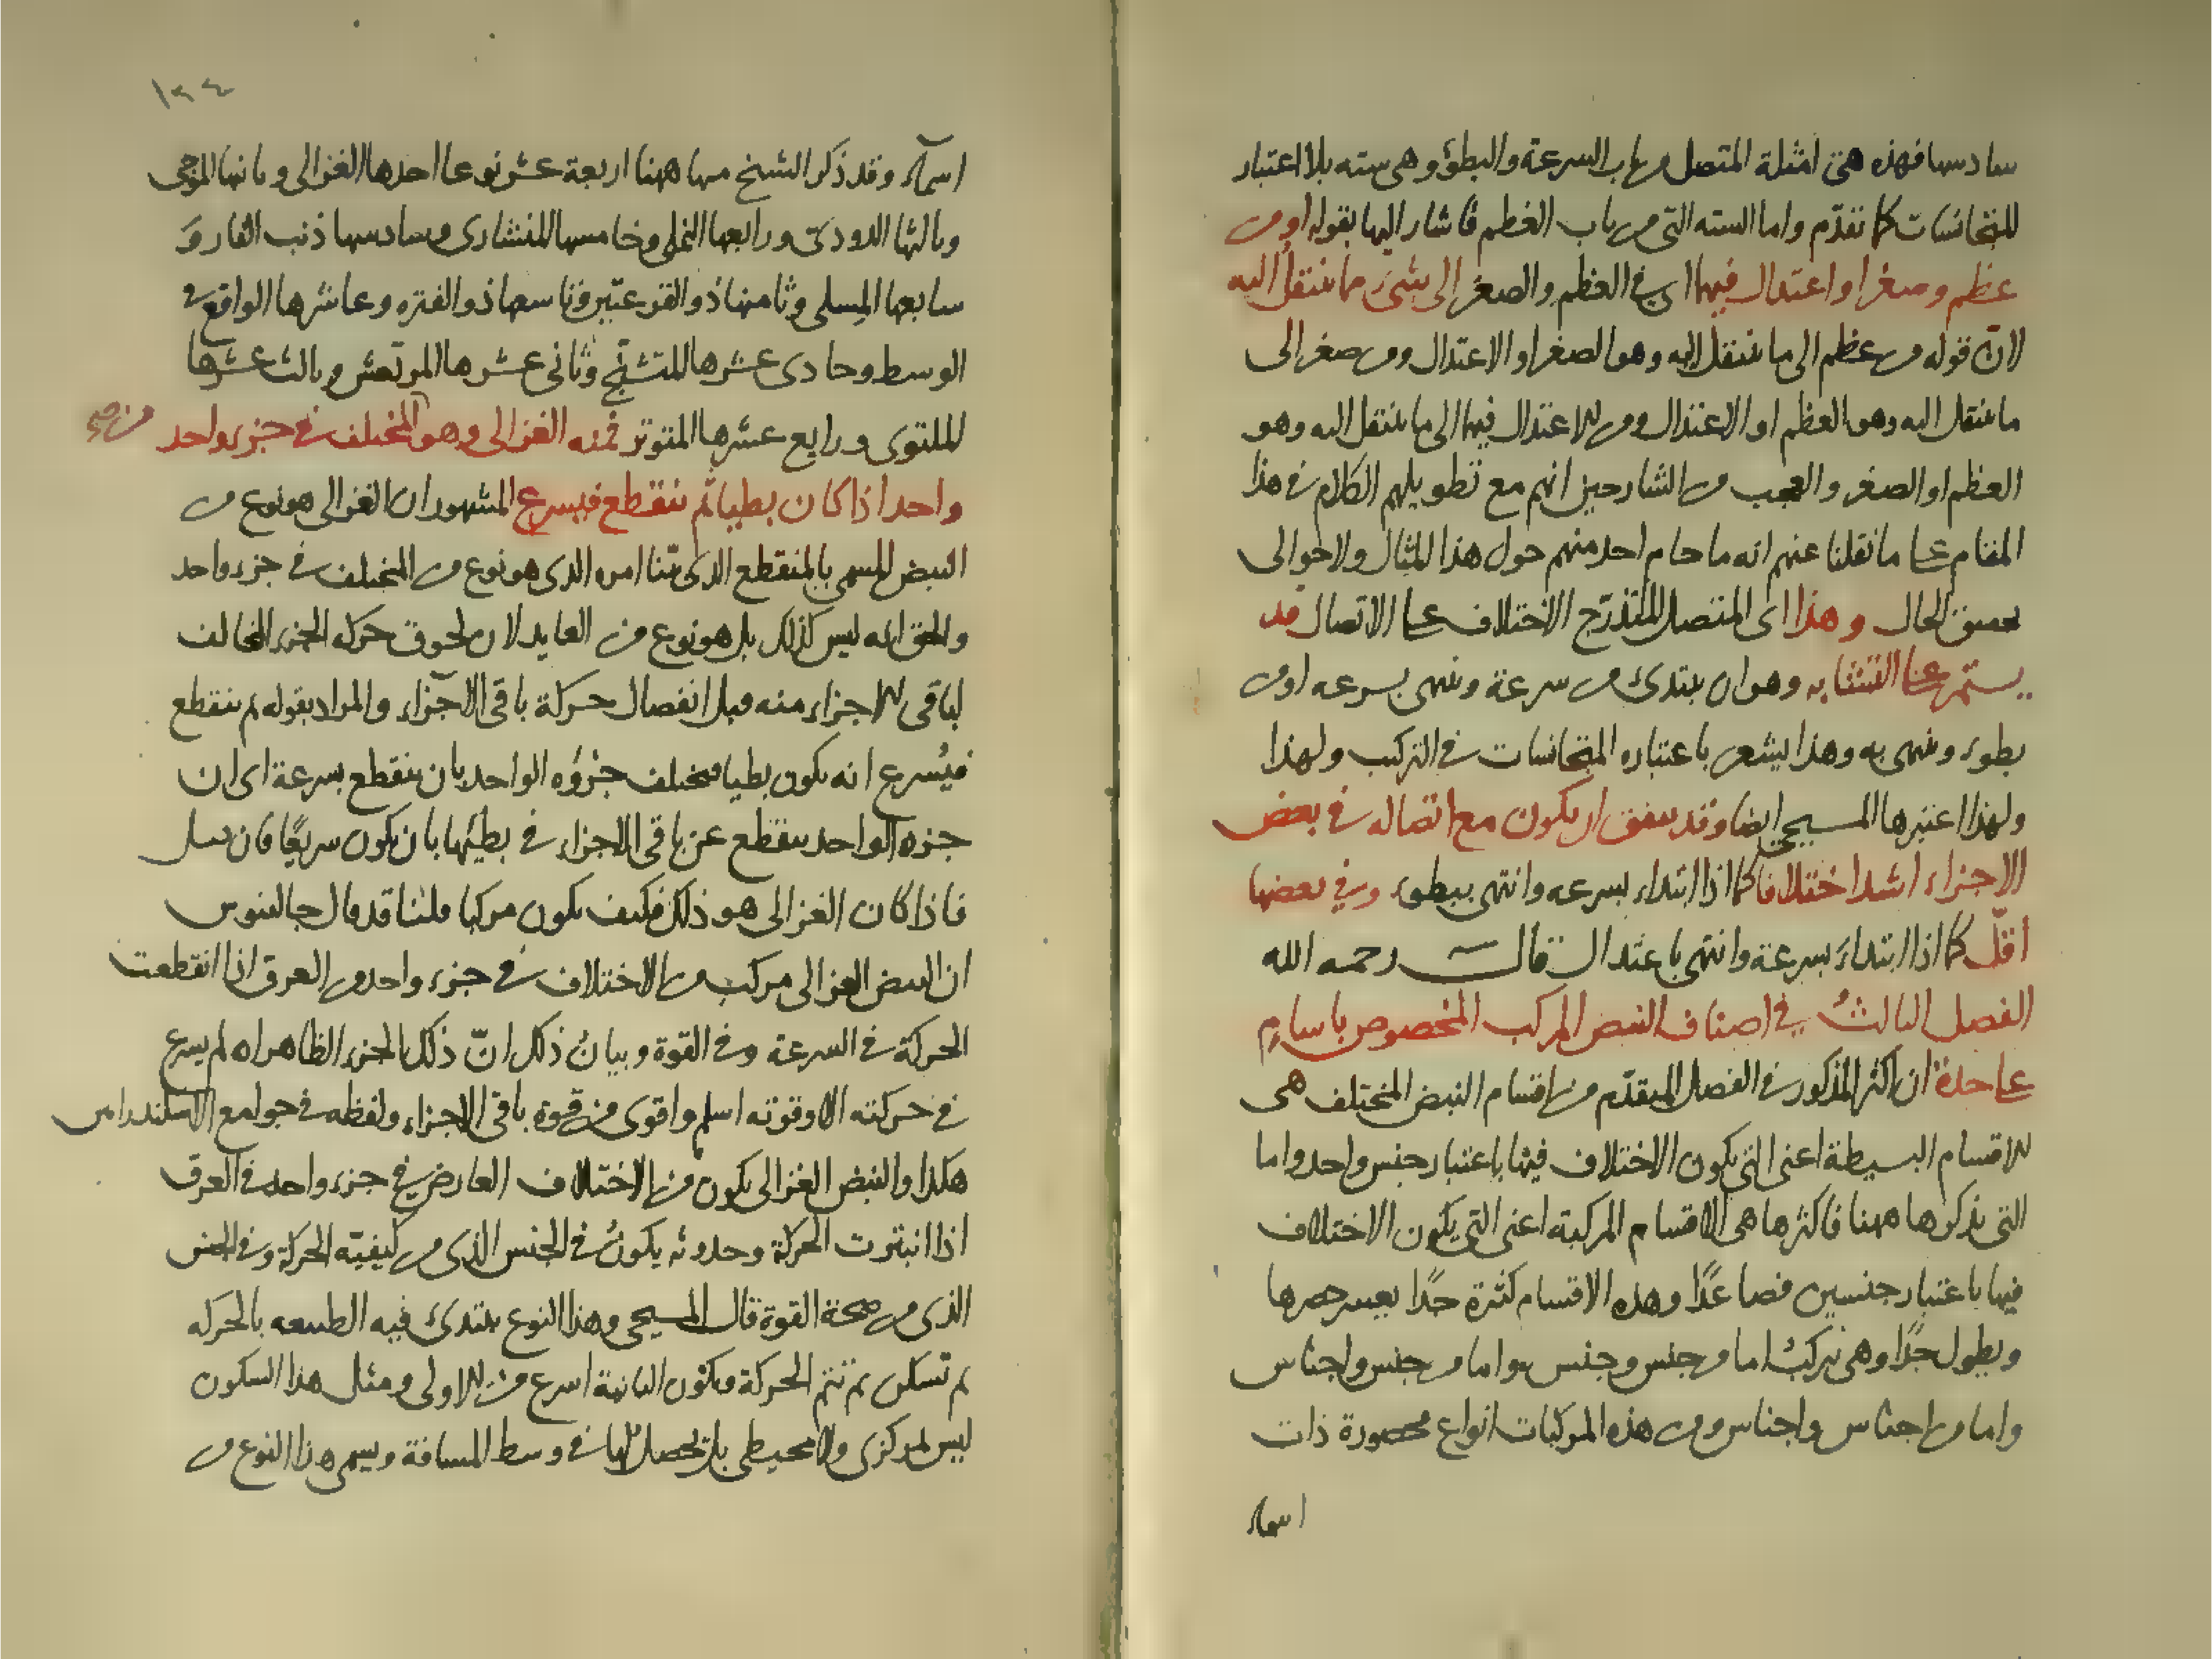 سادسها فهذه هى امثلة المتصل من باب السرعة والبطؤ وهى سته بلا اعتبار
المتجانسات كما تقدّم واما السته التى من باب العظم فاشار اليها بقوله او من
عظم وصغر او اعتدال فيهما اى فى العظم والصغر الى شىء مما ينتقل اليه
لانّ قوله من عظم الى ما ينتقل اليه وهو الصغر او الاعتدال ومن صغر الى
ما ينتقل اليه وهو العظم او الاعتدال ومن الاعتدال فيهما الى ما ينتقل اليه وهو
العظم او الصغر والعجب من الشارحين انهم مع تطويلهم الكلام فى هذا
المقام على ما نقلنا عنهم انه ما حام احد منهم حول هذا المثال ولا حوالى
تحقيق الحال وهذا اى المتصل المتدرّج الاختلاف على الاتصال قد
يستمر على التشابه وهو ان يبتدئ من سرعة وينتهى بسرعه او من
بطوء وينتهى به وهذا يشعر باعتباره المتجانسات فى التركيب ولهذا
ولهذا اعتبرها المسيحى ايضا وقد يتفق ان يكون مع اتصاله فى بعض
الاجزاء اشد اختلافا كما اذا ابتداء بسرعه وانتهى ببطوء وفى بعضها
اقلّ كما اذا ابتداء بسرعة وانتهى باعتدال قال رحمه الله
الفصل الثالث فى اصناف النبض المركب المخصوص باسام
على حدة ان اكثر المذكور فى الفصل المتقدّم من اقسام النبض المختلف هى
الاقسام البسيطة اعنى التى يكون الاختلاف فيها باعتبار جنس واحد واما
التى يذكرها ههنا فاكثرها هى الاقسام المركبة اعنى التى يكون الاختلاف
فيها باعتبار جنسين فصاعدًا وهذه الاقسام كثيرة جدًا يعسر حصرها
ويطول جدًا وهى تتركب اما من جنس وجنس واما من جنس واجناس
واما من اجناس واجناس ومن هذه المركبات انواع محصورة ذات
اسماء
١٣٤
اسمآء وقد ذكر الشيخ منها ههنا اربعة عشر نوعا احدها الغزالى وثانيها الموجى
وثالثها الدودى ورابعها النملى وخامسها المنشارى وسادسها ذنب الفار و
سابعها المسلى وثامنها ذو القرعتين وتاسعها ذو الفتره وعاشرها الواقع فى
الوسط وحادى عشرها المتشنّج وثانى عشرها المرتعش وثالث عشرها
الملتوى ورابع عشرها المتوتر فمنه الغزالى وهو المختلف فى جزء واحد
واحد اذا كان بطيا ثم ينقطع فيسرع المشهور ان الغزالى هو نوع من
النبض المسمى بالمنقطع الذى بيّنا امره الذى هو نوع من المختلف فى جزء واحد
والحق انه ليس كذلك بل هو نوع من العايد لان لحوق حركه الجزء المخالف
لباقى الاجزاء منه قبل انفصال حركة باقى الاجزاء والمراد بقوله ثم ينقطع
فيُسرع انه يكون بطيا فيختلف جزؤه الواحد بان ينقطع بسرعة اى ان
جزءه الواحد ينقطع عن باقى الاجزاء فى بطيئها بان يكون سريعًا فان قيل
فاذا كان الغزالى هو ذلك فكيف يكون مركبا قلنا قد قال جالينوس
ان النبض الغزالى مركب من الاختلاف فى جزء واحد من العرق اذا انقطعت
الحركة فى السرعة وفى القوة وبيانُ ذلك انّ ذلك الجزء الظاهر انه لم يسرع
فى حركته الا وقوته اسلم واقوى من قوة باقى الاجزاء ولفظه فى جوامع الاسكندرانيين
هكذا والنبض الغزالى يكون من الاختلاف العارض فى جزء واحد فى العرق
اذا انبترت الحركة وحدوثه يكونُ فى الجنس الذى من كيفيّه الحركة وفى الجنس
الذى من صحة القوة قال المسيحى وهذا النوع يبتدئ فيه الطبيعه بالحركه
ثم تسكن ثم تتم الحركة ويكون الثانية اسرع من الاولى ومثل هذا السكون
ليس لمركزى ولا محيطى بل تحصل لها فى وسط المسافة ويسمى هذا النوع من